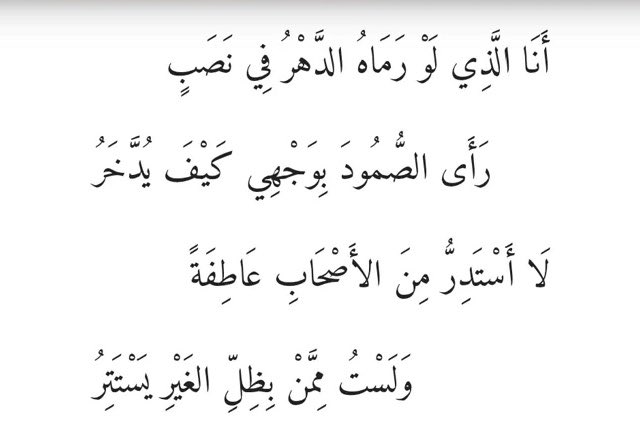 أَنَا الَّذِي لَوْ رَمَاهُ الدَّهْرُ فِي نَصَبٍ
رَأَى الصُّمُودَ بِوَجْهِي كَيْفَ يُدَّخَرُ
لَا أَسْتَدِرُّ مِنَ الأَصْحَابِ عَاطِفَةً
وَلَسْتُ مِمَّنْ بِظِلِّ الغَيْرِ يَسْتَتِرُ